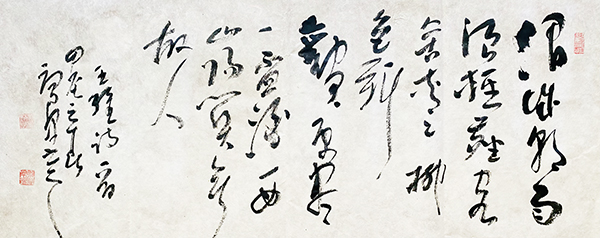 渭城朝雨
浥輕塵客
舍青々柳
色新
勸君更盡
一盃酒西
出陽關無
故人
王維詩一首